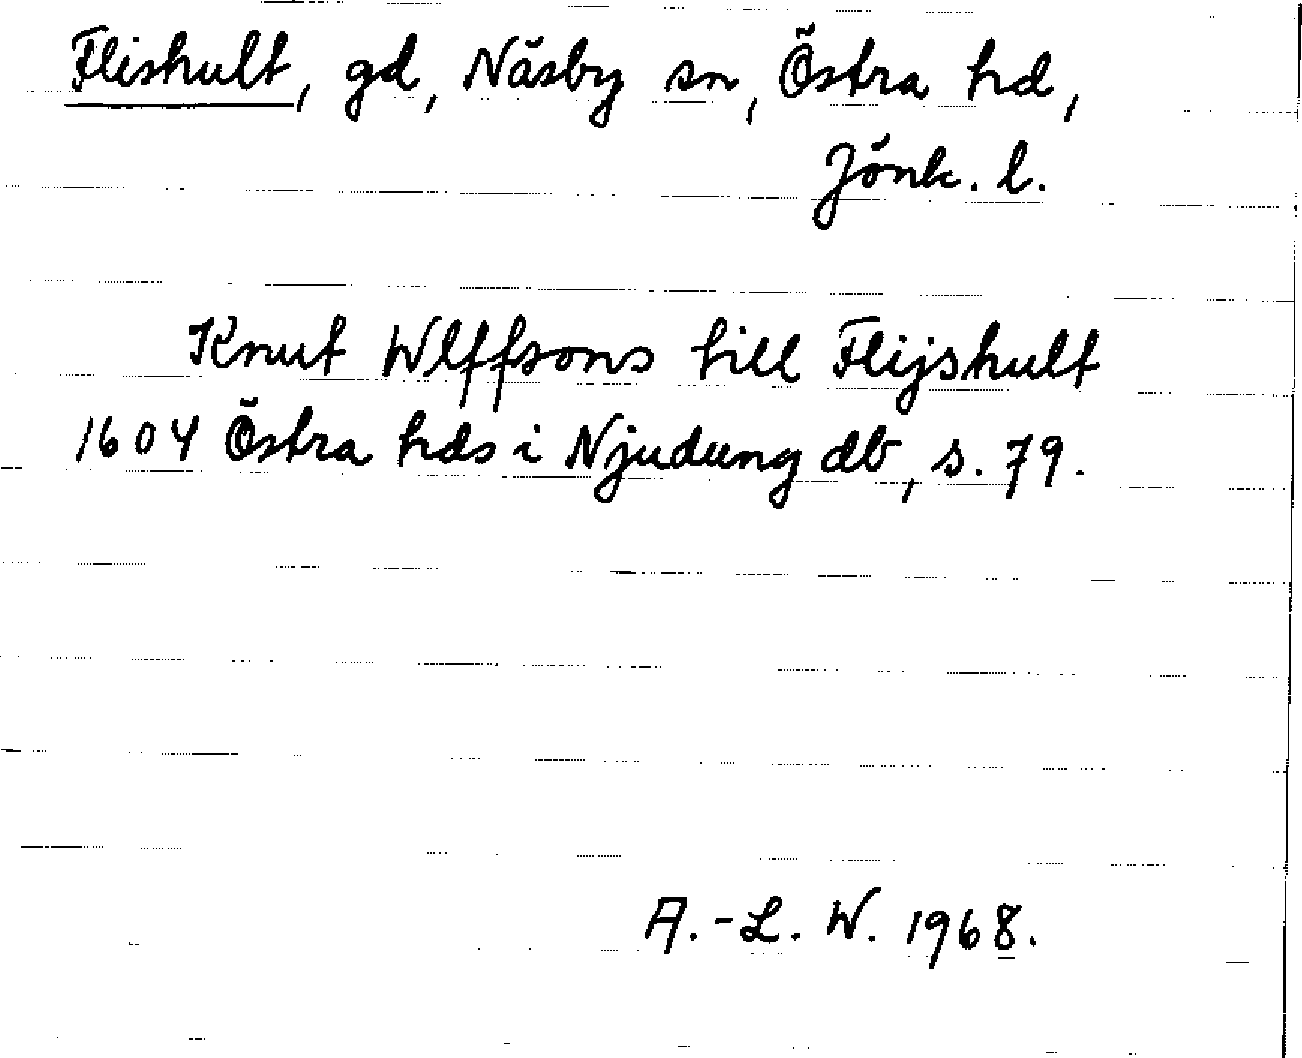 Flishult, gd, Näsby sn, Östra hd,
Jönk. l.
Knut Wlffsons till Flijshult
1604 Östra hds i Njudung db, s. 79.
A.-L. W. 1968.